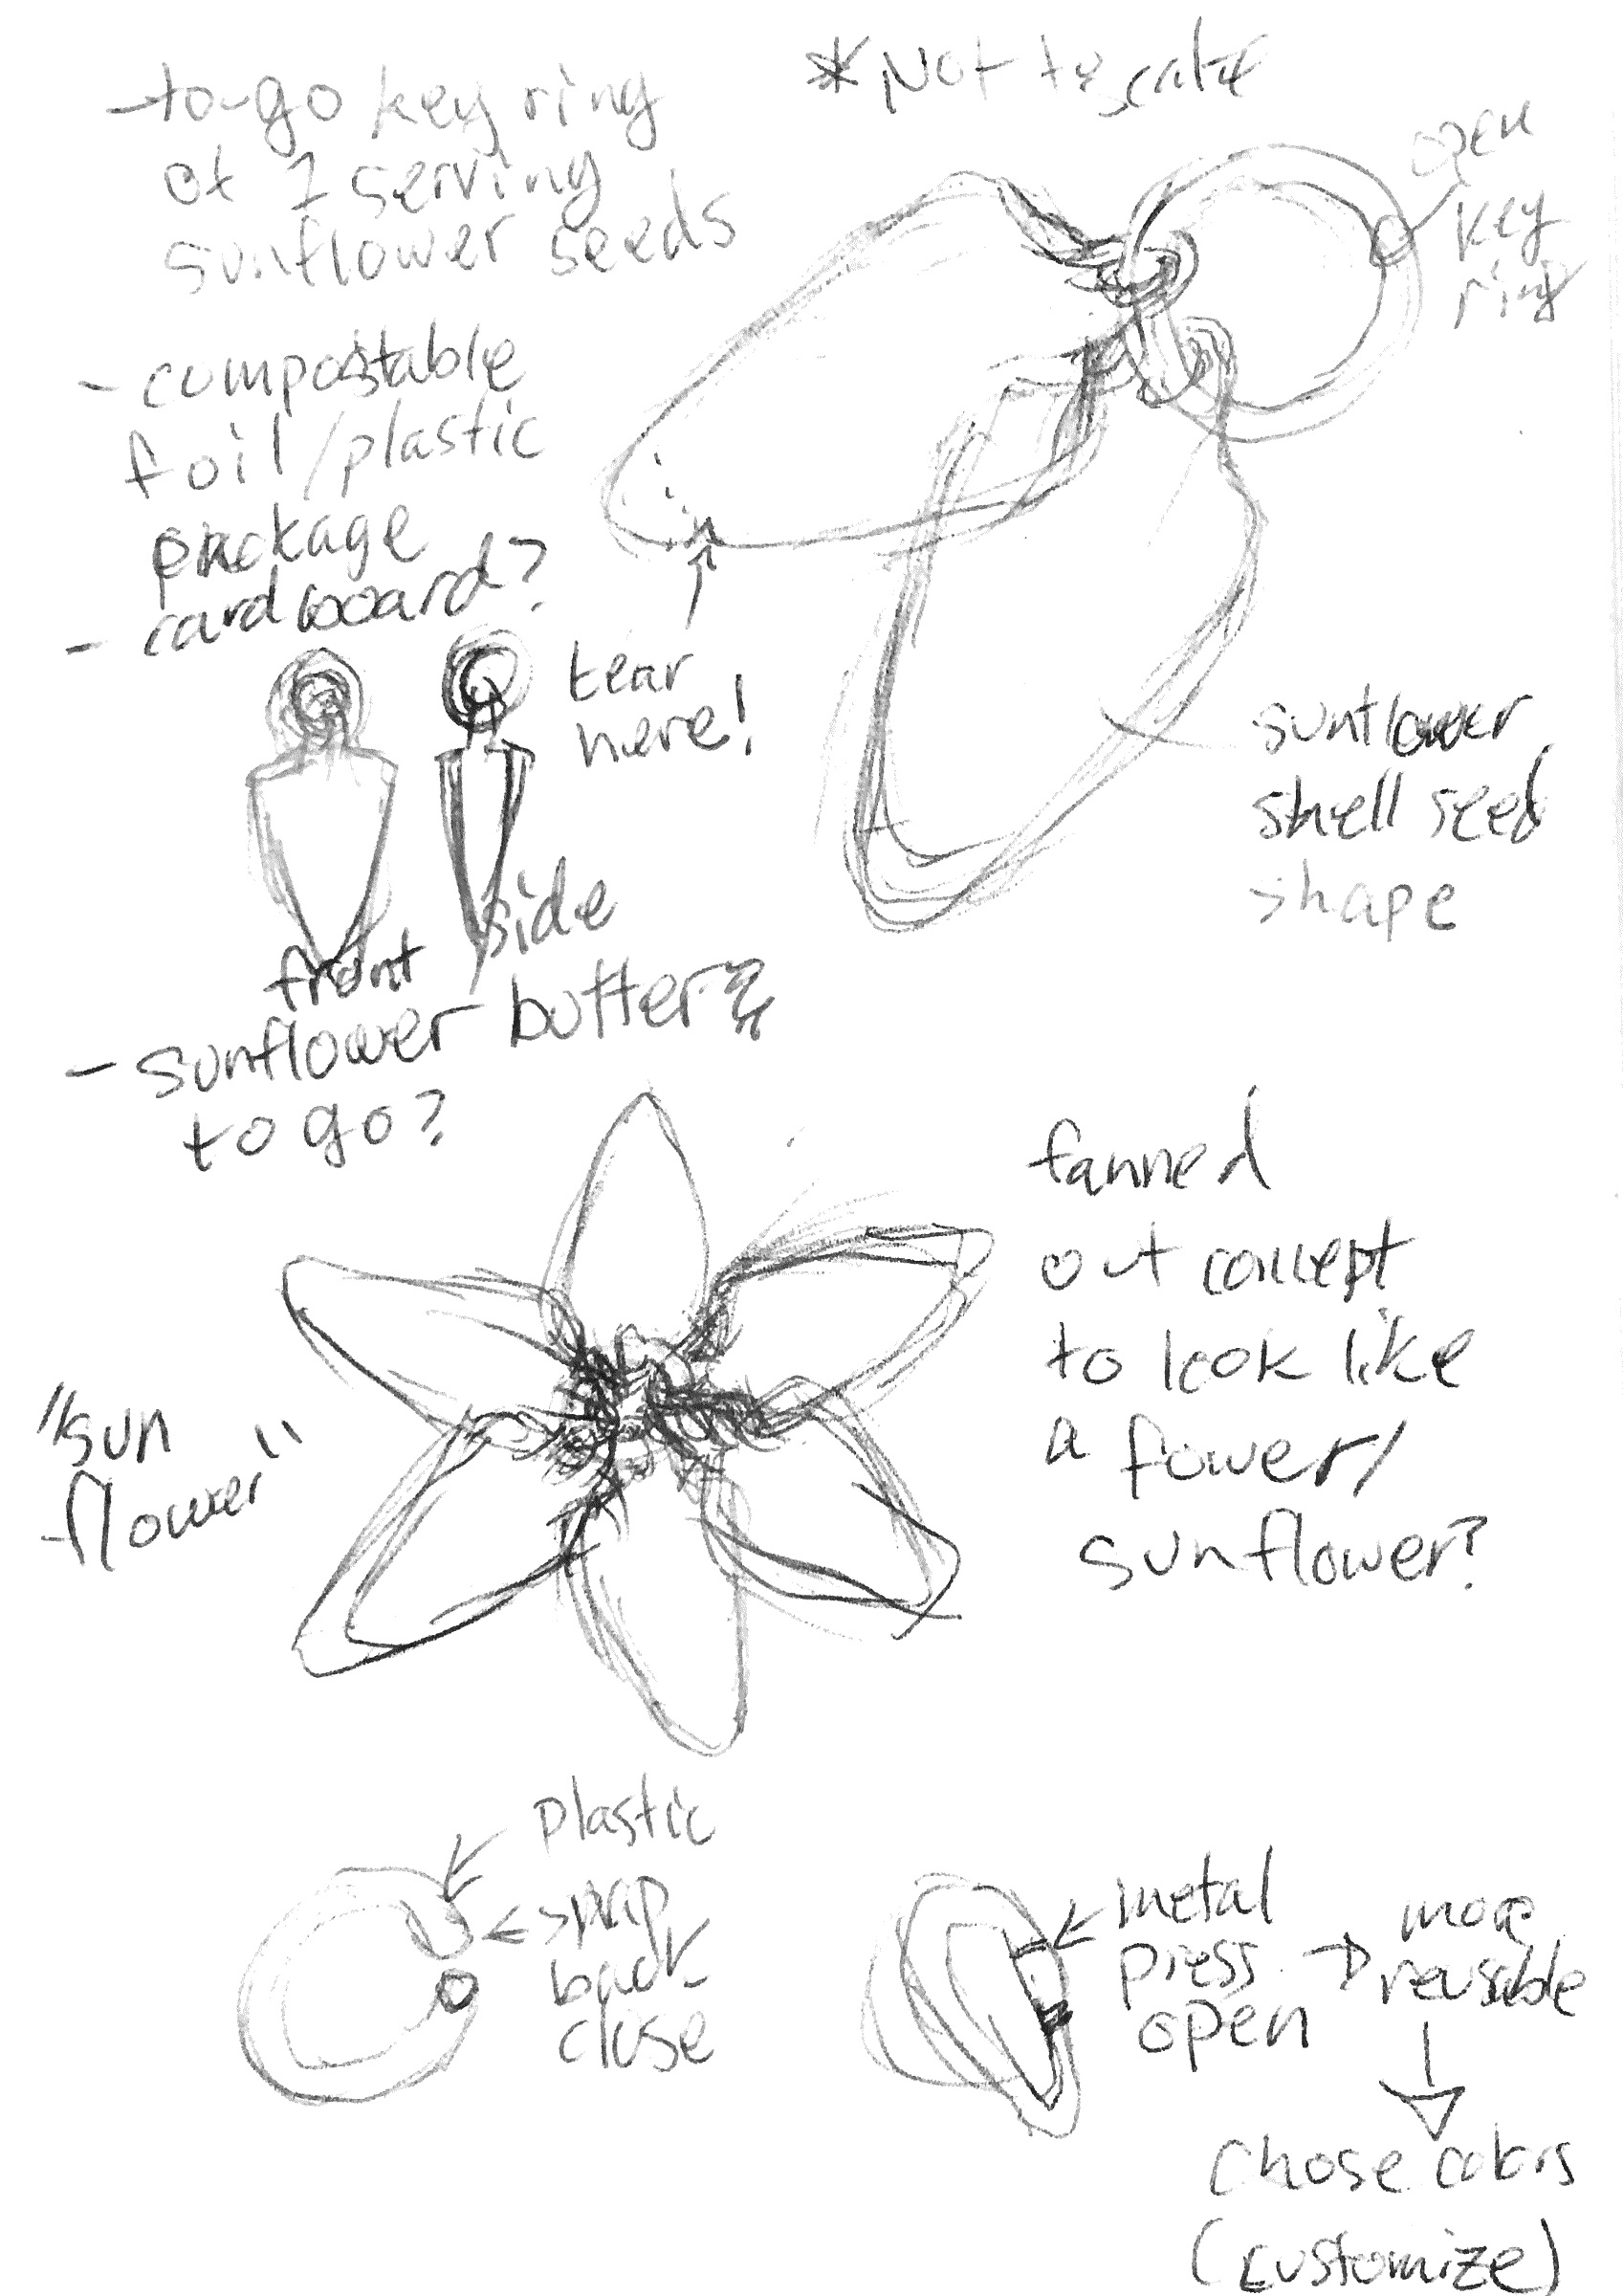 * Not to scale
- to-go key ring
of 1 serving
sunflower seeds
open
key
ring
- compostable
foil/plastic
package
- cardboard?
tear
here!
sunflower
shell seed
shape
front
side
- sunflower butter
to go?
fanned
out concept
to look like
a fower/
sunflower?
"sun
flower"
plastic
snap
back
close
metal
press
open
more
reusable
chose colors
(customize)